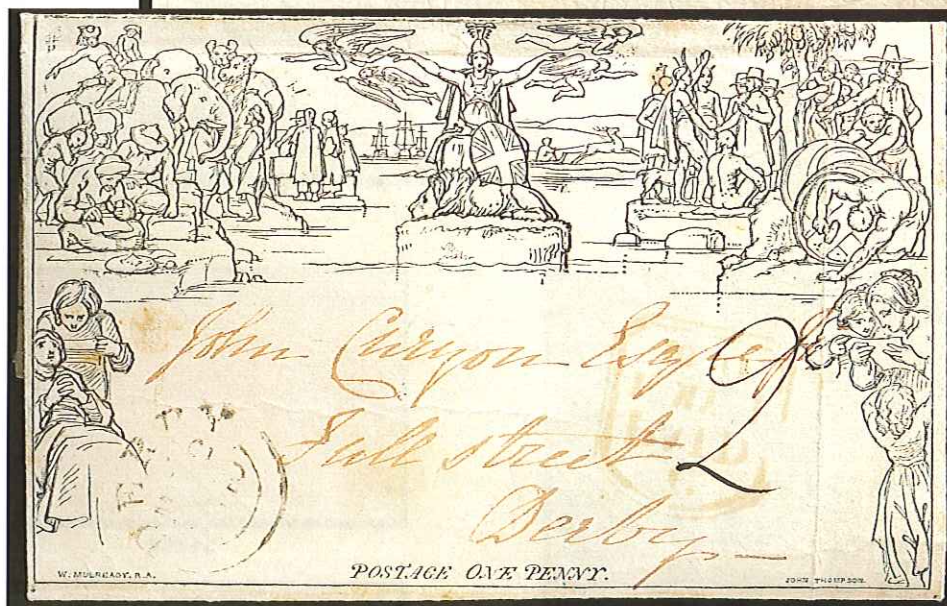 John Curzon Esqre
2
Full street
Derby
W. MULREADY. R.A.
POSTAGE ONE PENNY.
JOHN THOMPSON.